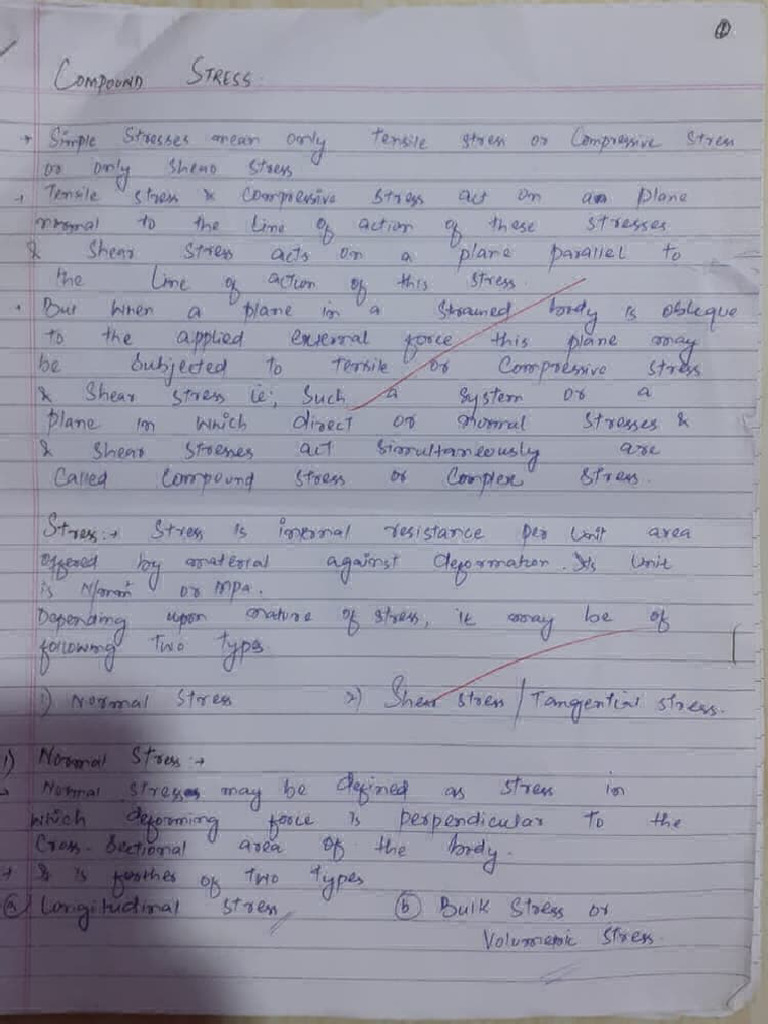 ①
COMPOUND STRESS.
→ Simple Stresses mean only tensile stress or Compressive stress
or only shear stress
→ Tensile stress & compressive stress act on an plane
normal to the line of action of these stresses
& shear stress acts on a plane parallel to
the line of action of this stress.
• But when a plane in a strained body is obleque
to the applied external force this plane may
be subjected to tensile or compressive stress
& shear stress ie; such a system or a
plane in which direct or normal stresses &
& shear stresses act simultaneously are
Called compound stress or complex stress.
Stress:→ Stress is internal resistance per unit area
offered by material against deformation. Its unit
is N/mm² or MPA.
Depending upon nature of stress, it may be of
following two types
1) Normal stress 2) Shear stress / Tangential stress.
1) Normal Stress:→
→ Normal stress may be defined as stress in
which deforming force is perpendicular to the
Cross-Sectional area of the body.
→ & is further of two types
ⓐ Longitudinal stress ⓑ Bulk stress or
Volumetric stress.